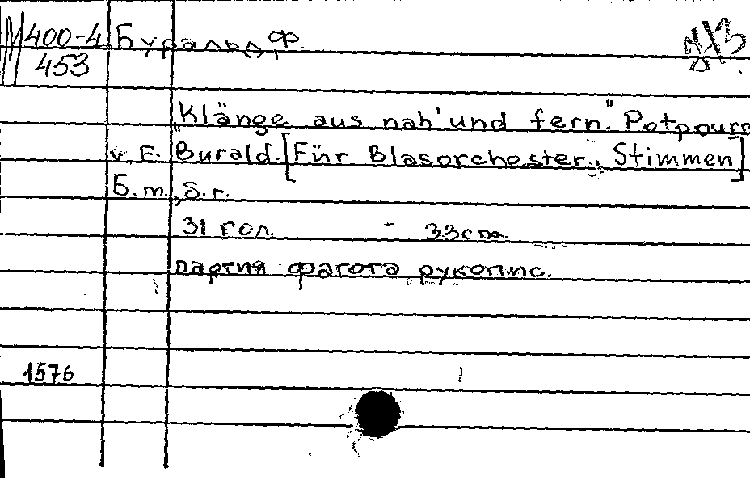 400-4 Буральд, Ф.
453
"Klänge aus nah' und fern." Potpourr
v. F. Burald. [Für Blasorchester., Stimmen]
Б.m., S.r.
31 гол. - 33cm
партия фагота рукопис.
1576